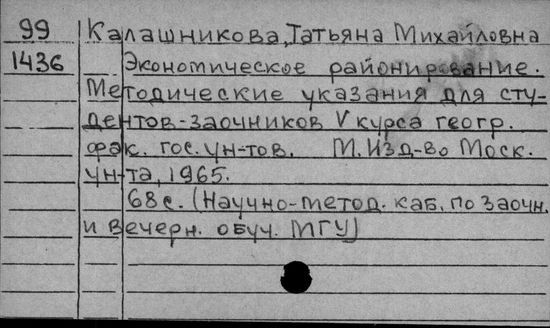 99 Калашникова, Татьяна Михайловна
1436 Экономическое районирование.
Методические указания для сту-
дентов-заочников V курса геогр.
фак. гос. ун-тов. М. Изд-во Моск.
ун-та, 1965.
68 с. (Научно-метод. каб. по заочн.
и вечерн. обуч. МГУ)